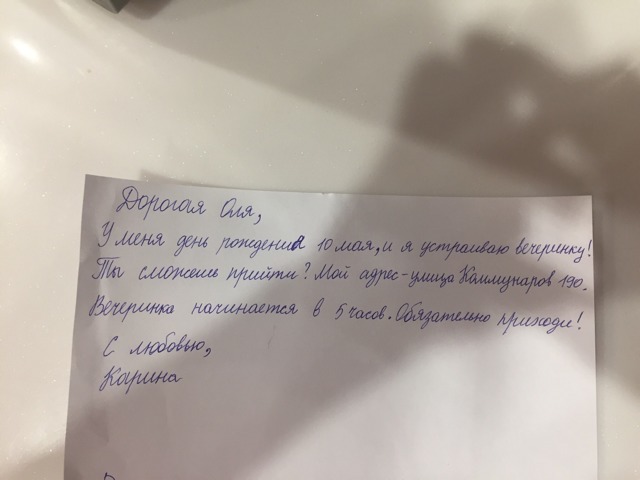 Дорогая Оля,
У меня день рождения 10 мая, и я устраиваю вечеринку!
Ты сможешь прийти? Мой адрес - улица Коммунаров 190.
Вечеринка начинается в 5 часов. Обязательно приходи!
С любовью,
Карина